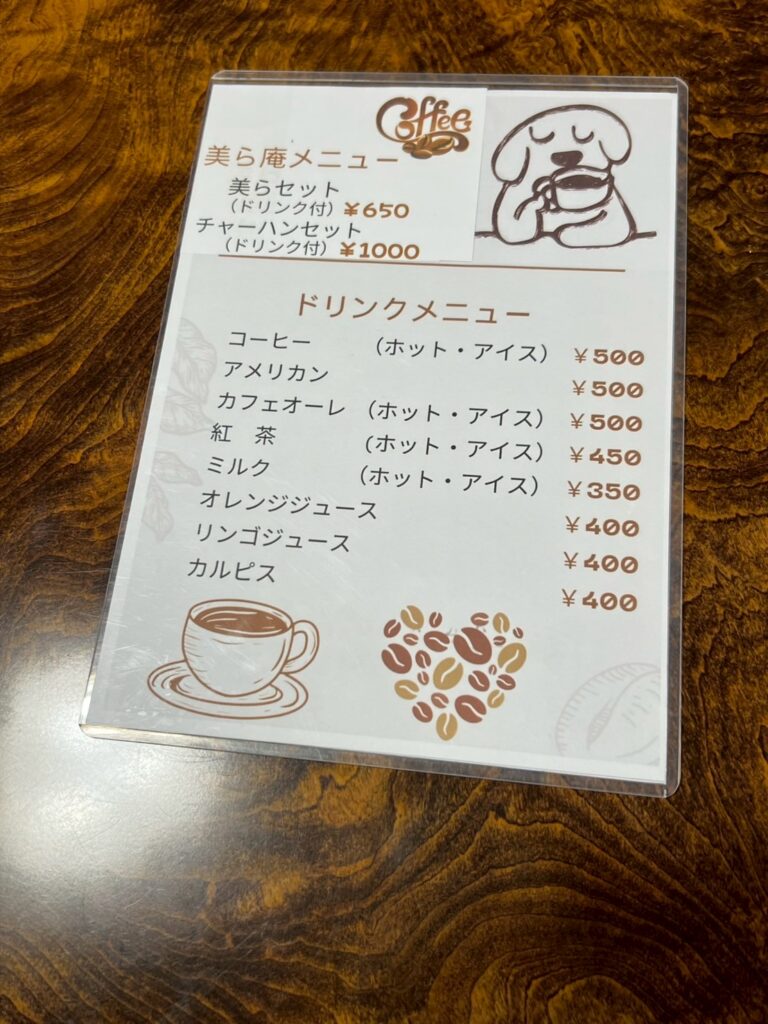 Coffee
美ら庵メニュー
美らセット
（ドリンク付）￥650
チャーハンセット
（ドリンク付）￥1000
ドリンクメニュー
コーヒー （ホット・アイス） ￥500
アメリカン ￥500
カフェオーレ （ホット・アイス） ￥500
紅　茶 （ホット・アイス） ￥450
ミルク （ホット・アイス） ￥350
オレンジジュース ￥400
リンゴジュース ￥400
カルピス ￥400